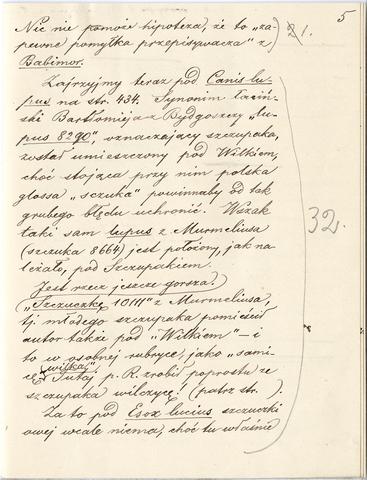 5
Nic nie pomoże hipoteza, że to "za-
pewne pomyłka przepisywacza" z
Babimor.
21.
Zajrzyjmy teraz pod Canis lu-
pus na str. 434. Synonim łaciń-
ski Bartłomieja z Bydgoszczy "lu-
pus 8290", oznaczający szczupaka,
został umieszczony pod Wilkiem,
choć stojąca przy nim polska
glossa "sczuka" powinnaby od tak
grubego błędu uchronić. Wszak
taki sam lupus z Murmeliusa
(szczuka 8664) jest położony, jak na-
leżało, pod Szczupakiem.
32.
Jest rzecz jeszcze gorsza.
"Szczuczkę 10111" z Murmeliusa,
tj. młodego szczupaka pomieścił
autor także pod "Wilkiem" – i
to w osobnej rubryce, jako "sami-
cę wilka". Tutaj p. R. zrobił poprostu ze
szczupaka wilczycę! (patrz str. ).
Za to pod Esox lucius szczuczki
owej wcale niema, choć tu właśnie